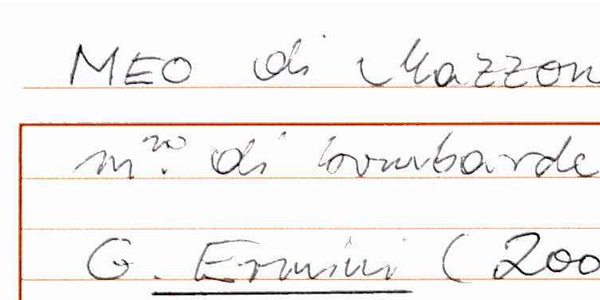 MEO di Mazzon
m.ro di bombarde
G. Ermini (200